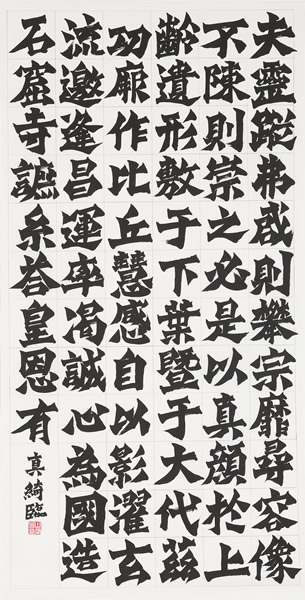 夫靈蹤弗啟則攀宗靡尋容像
不陳則崇之必是以真顏於上
齡遺形敷于下葉暨于大代茲
功厥作比丘慧感自以影濯玄
流邀逢昌運率渴誠心為國造
石窟寺糸答皇恩有
真綺臨